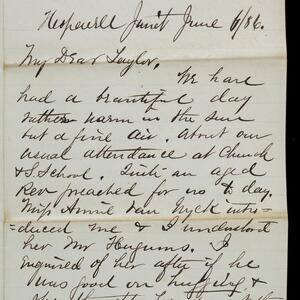 Hopewell Junct June 6/86.
My Dear Taylor,
We have
had a beautiful day
rather warm in the sun
but a fine air. About our
usual attendance at Church
& S. School. Quite an aged
Rev preached for us to day.
Miss Annie Van Wyck intro-
duced me & I understood
her Mr Hegums. I
enquired of her after if he
was good on